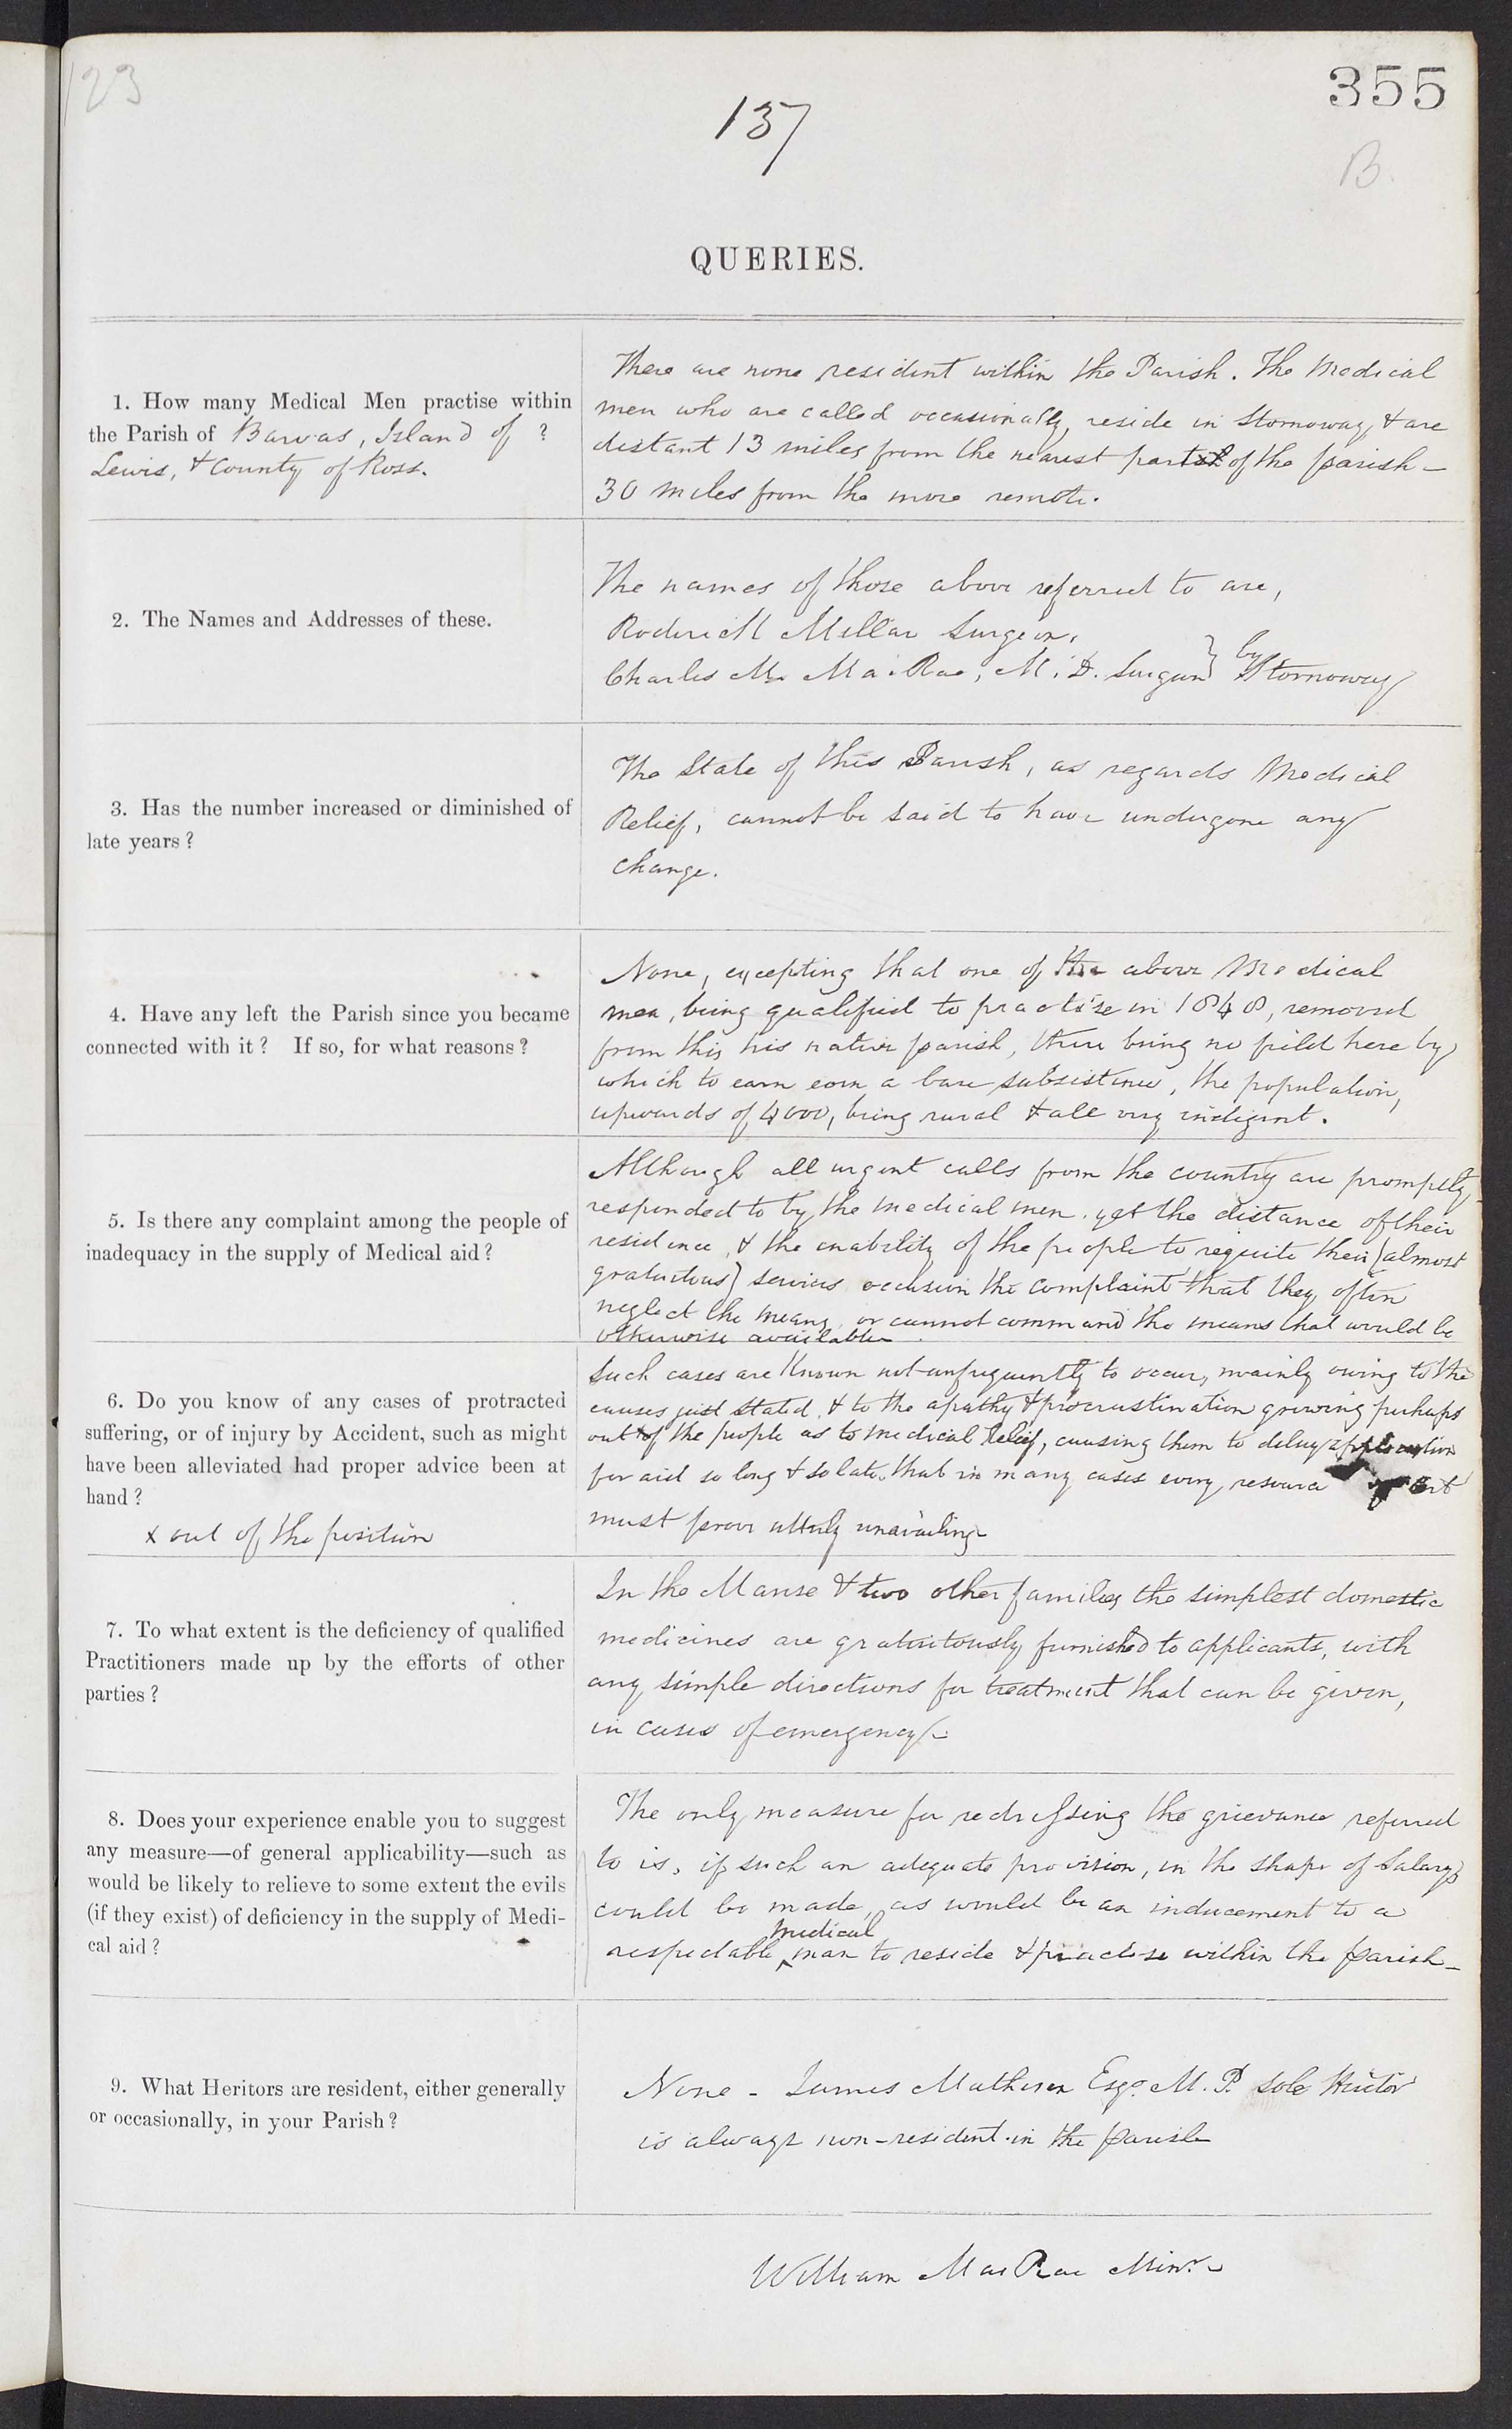 123
355
137
B.
QUERIES.
1. How many Medical Men practise within
the Parish of Barvas, Island of ?
Lewis, & County of Ross.
There are none resident within the Parish. The Medical
men who are called occasionally, reside in Stornoway, & are
distant 13 miles from the nearest part of the parish –
30 miles from the more remote.
2. The Names and Addresses of these.
The names of those above referred to are,
Roderick Millar Surgeon,
Charles M. MacRae, M.D. Surgeon } by Stornoway
3. Has the number increased or diminished of
late years?
The State of this Parish, as regards Medical
Relief, cannot be said to have undergone any
change.
4. Have any left the Parish since you became
connected with it? If so, for what reasons?
None, excepting that one of the above Medical
men, being qualified to practise in 1848, removed
from this his native parish, there being no field here by
which to earn even a bare subsistence, the population,
upwards of 4000, being rural & all very indigent.
5. Is there any complaint among the people of
inadequacy in the supply of Medical aid?
Although all urgent calls from the country are promptly
responded to by the medical men, yet the distance of their
residence, & the inability of the people to requite their (almost
gratuitous) services occasion the complaint that they often
neglect the means, or cannot command the means that would be
otherwise available
6. Do you know of any cases of protracted
suffering, or of injury by Accident, such as might
have been alleviated had proper advice been at
hand?
x out of the position
Such cases are known not unfrequently to occur, mainly owing to the
causes just stated, & to the apathy & procrastination growing perhaps
out x of the people as to medical relief, causing them to delay application
for aid so long & so late, that in many cases every resource of art
must prove utterly unavailing
7. To what extent is the deficiency of qualified
Practitioners made up by the efforts of other
parties?
In the Manse & two other families the simplest domestic
medicines are gratuitously furnished to applicants, with
any simple directions for treatment that can be given,
in cases of emergency.
8. Does your experience enable you to suggest
any measure—of general applicability—such as
would be likely to relieve to some extent the evils
(if they exist) of deficiency in the supply of Medi-
cal aid?
The only measure for redressing the grievance referred
to is, if such an adequate provision, in the shape of Salary,
could be made, as would be an inducement to a
respectable medical man to reside & practise within the parish –
9. What Heritors are resident, either generally
or occasionally, in your Parish?
None - James Matheson Esqr. M.P. sole Heritor
is always non-resident in the parish
William MacRae Minr.